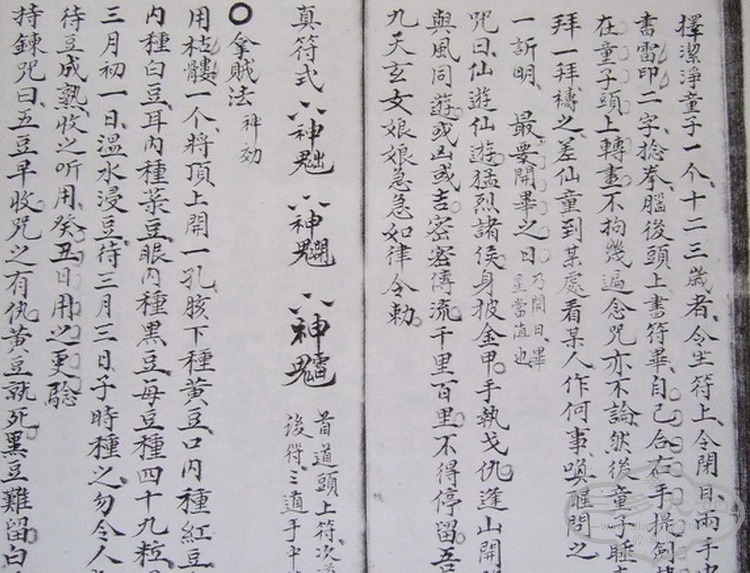 擇潔淨童子一个、十二三歲者、令坐符上、令閉目、兩手中
書雷印二字、捻拳、腦後頭上書符畢、自己合右手提劍
在童子頭上轉畫、不拘幾遍、念咒亦不論、然後童子睡
拜一拜、禱之、差仙童到某處看某人作何事、喚醒問之
一訢明、 最要開畢之日 乃開日、畢
星當直也
咒曰、仙遊仙遊、猛烈諸侯、身披金甲、手執戈仇、逢山開
與風同遊、或凶或吉、密密傳流、千里百里、不得停留、吾
九天玄女娘娘急急如律令勅
真符式 神 神 神 首道頭上符、次道
後符、三道于中
○拿賊法 神効
用枯髏一个、將頂上開一孔、胲下種黃豆、口內種紅豆、
內種白豆、耳內種菉豆、眼內種黑豆、每豆種四十九粒、
三月初一日、溫水浸豆、待三月三日子時種之、勿令人
待豆成熟、收之听用、癸丑日用之更驗
持鍊咒曰、五豆早收、咒之有仇、黃豆孰死、黑豆難留、白